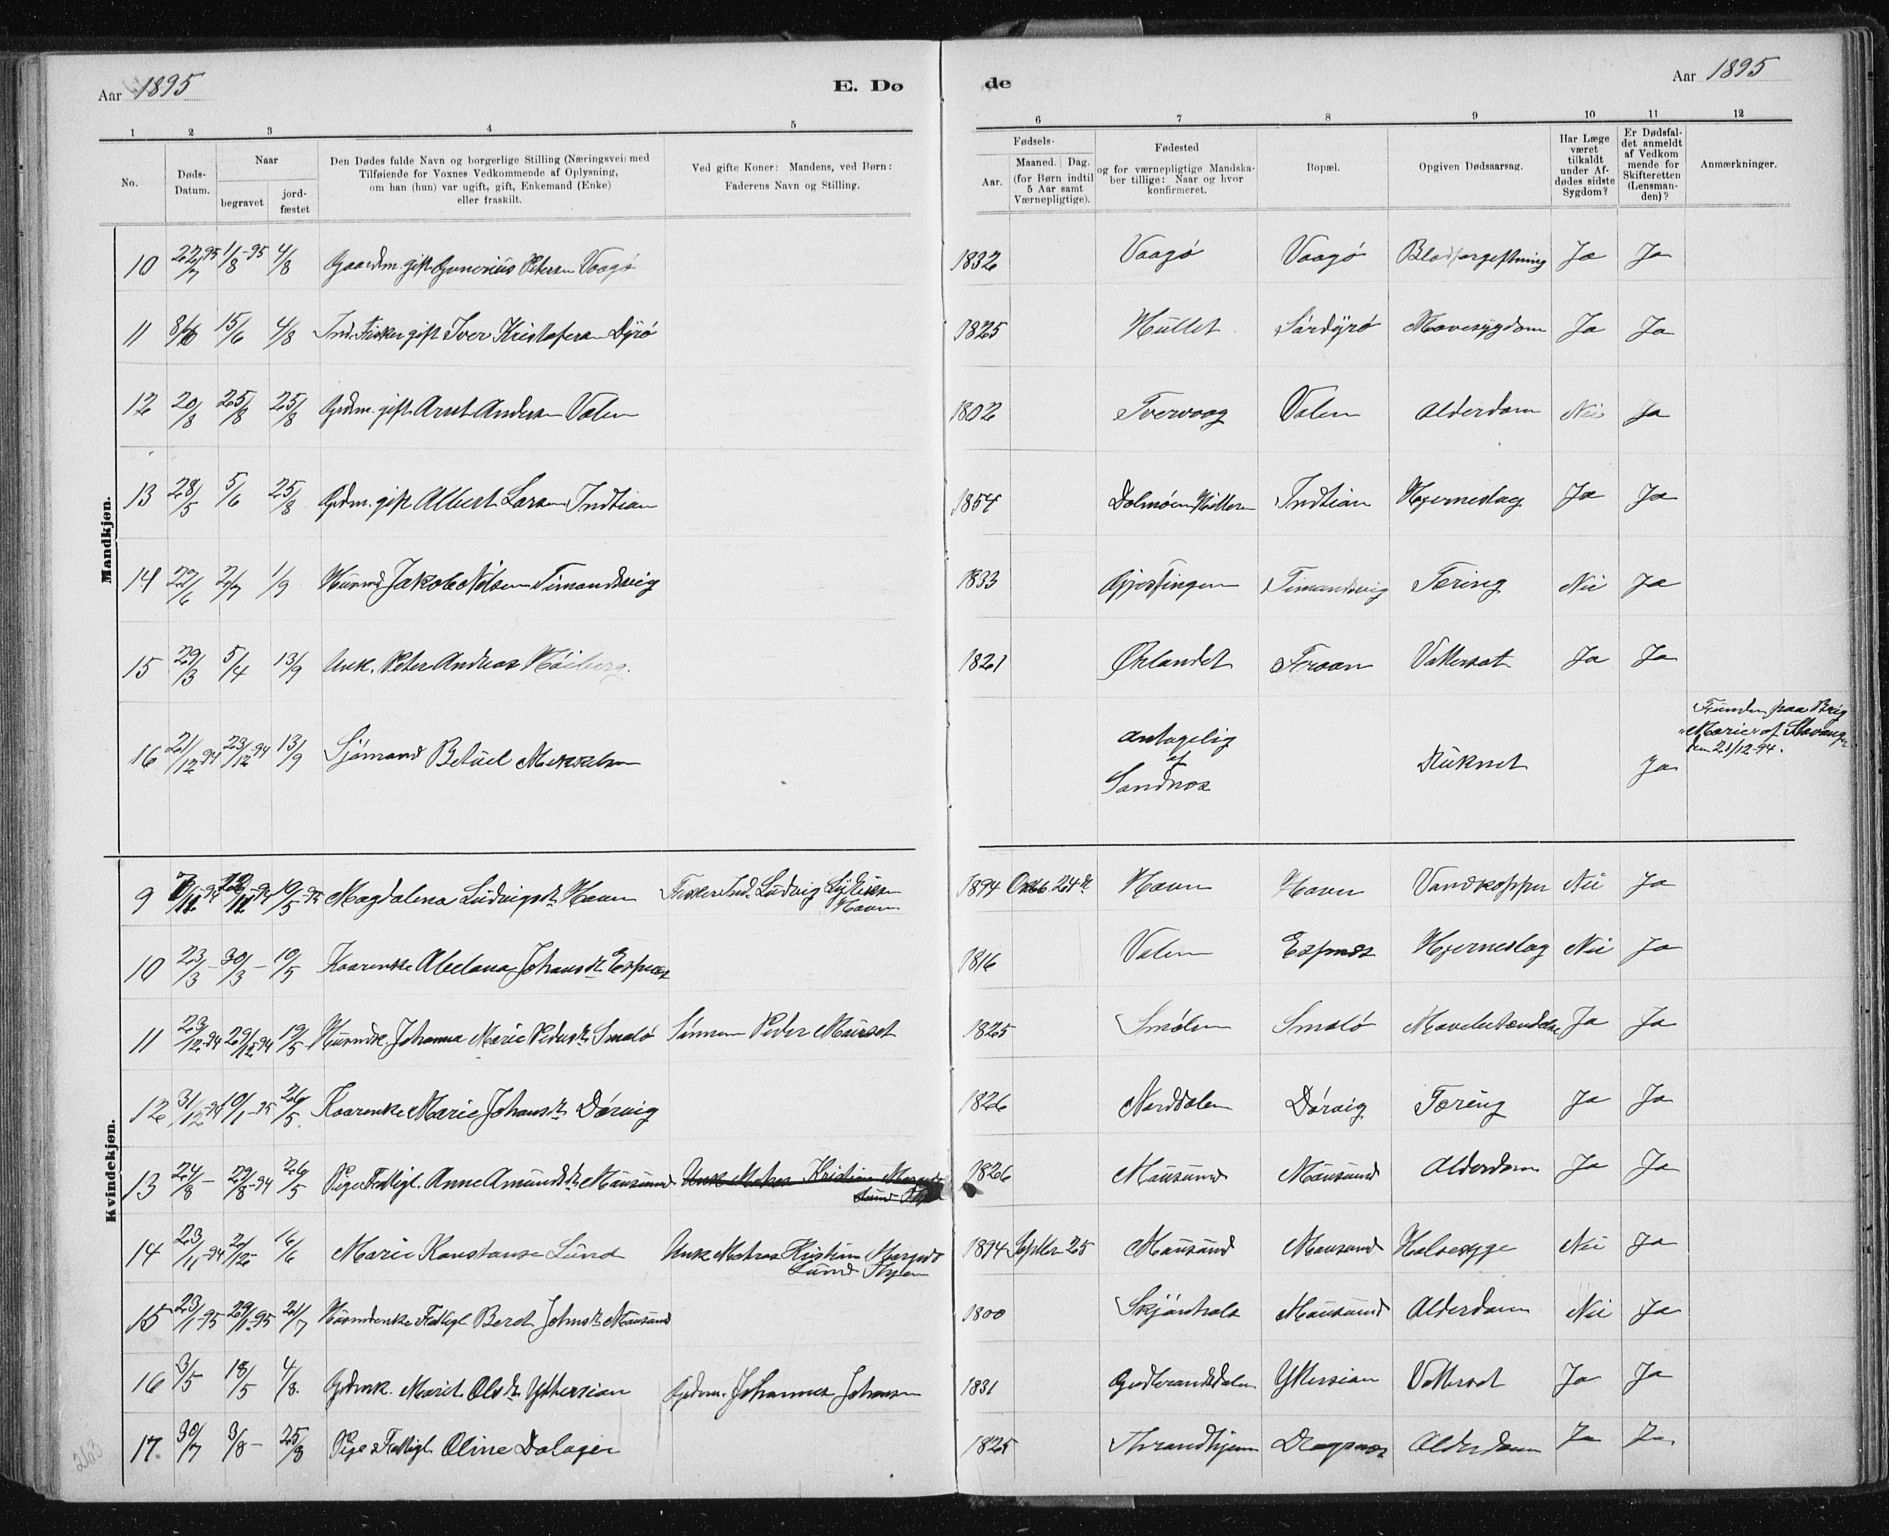 Aar 1895
E. Dø
de
Aar 1895
1 2 3 4 5
6 7 8 9 10 11 12
No.
Døds-
Datum.
Naar
begravet
jord-
fæstet
Den Dødes fulde Navn og borgerlige Stilling (Næringsvei) med
Tilføiende for Voxnes Vedkommende af Oplysning,
om han (hun) var ugift, gift, Enkemand (Enke)
eller fraskilt.
Ved gifte Koner: Mandens, ved Børn:
Faderens Navn og Stilling.
Fødsels-
Aar.
Maaned. Dag.
(for Børn indtil
5 Aar samt
Værnepligtige).
Fødested
og for værnepligtige Mandska-
ber tillige: Naar og hvor
konfirmeret.
Bopæl.
Opgiven Dødsaarsag.
Har Læge
været
tilkaldt
under Af-
dødes sidste
Sygdom?
Er Dødsfal-
det anmeldt
af Vedkom
mende for
Skifteretten
(Lensman-
den)?
Anmærkninger.
Mandkjøn.
10 22/7-95 1/8-95 4/8 Gaardm. gift Gunerius Petersen Vaagø 1832 Vaagø Vaagø Blodforgiftning Ja Ja
11 15/6 4/8 Ind. Fisker gift Iver Kristofersen Dyrø 1825 Hullet Sørdyrø Mavesygdom Ja Ja
12 20/8 25/8 25/8 Grdm. gift Arnt Andersen Valen 1802 Tvervaag Valen Alderdom Nei Ja
13 28/5 5/6 25/8 Grdm. gift Albert Larsen Indtian 1854 Dolmøen Hitteren Indtian Hjerneslag Ja Ja
14 22/6 2/7 1/9 Jakob Nilsen Timandsvig 1833 Gjæsingen Timandsvig Tæring Nei Ja
15 29/3 5/4 13/9 Unk. Peter Andreas Høiberg. 1821 Ørlandet Froan Vattersot Ja Ja
16 21/12-94 23/12-94 13/9 Sjømand Betuel Mikkelsen antagelig
af
Sandnæs Druknet Ja Funden paa Brig
"Marie" af Stavanger
den 21/12-94.
Kvindekjøn.
9 10/5-95 Magdalena Ludvigsdt. Havn Fisker Ind. Ludvig
Havn 1894 Oktb. 24de Havn Havn Vandkopper Nei Ja
10 23/3- 30/3- 10/5 Kaarenke Abelana Johansdt. Espnæs 1816 Valen Espnæs Hjerneslag Nei Ja
11 23/12-94 29/12-94 19/5 Johanna Marie Pedersdt. Smalø Sønnen Peder Maurset 1825 Smølen Smalø Mavebetændelse Ja Ja
12 31/12-94 10/1-95 26/5. Kaarenke Marie Johansdt. Dørvig 1826 Norddalen Dørvig Tæring Ja Ja
13 24/8- 29/8-94 26/5 Pige Fattigl. Anne Amundsdt. Mausund 1826 Mausund Mausund Alderdom Ja Ja
14 23/11-94 2/12- 16/6 Marie Konstanse Lund Unk Matros Kristian
Lund 1894 Septbr 25 Mausund Mausund Halsesyge Nei Ja
15 23/1-95 29/1-95 21/7 Huusmdenke Fattigl. Beret Johnsdt. Mausund 1800 Skjørhals Mausund Alderdom Nei Ja
16 3/5 18/5 4/8. Grdmk. Marit Olsdt. Yttersian Grdm. Johannes Johansen 1831 Gudbrandsdalen Yttersian Vattersot Ja Ja
17. 30/7 3/8- 25/8 Pige Fattigl. Oline Dolager 1825 Thrandhjem Dragsnæs Alderdom Ja Ja.
263